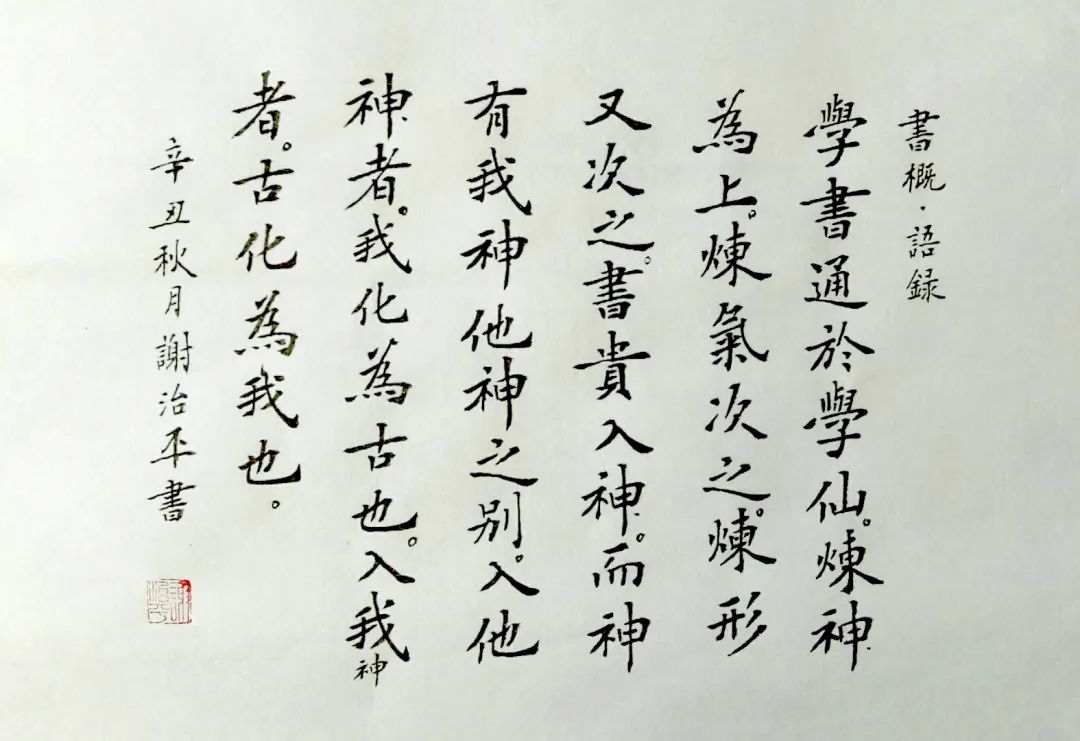 書概·語録
學書通於學仙。煉神
為上。煉氣次之。煉形
又次之。書貴入神。而神
有我神他神之别。入他
神者。我化為古也。入我神
者。古化為我也。
辛丑秋月謝治平書